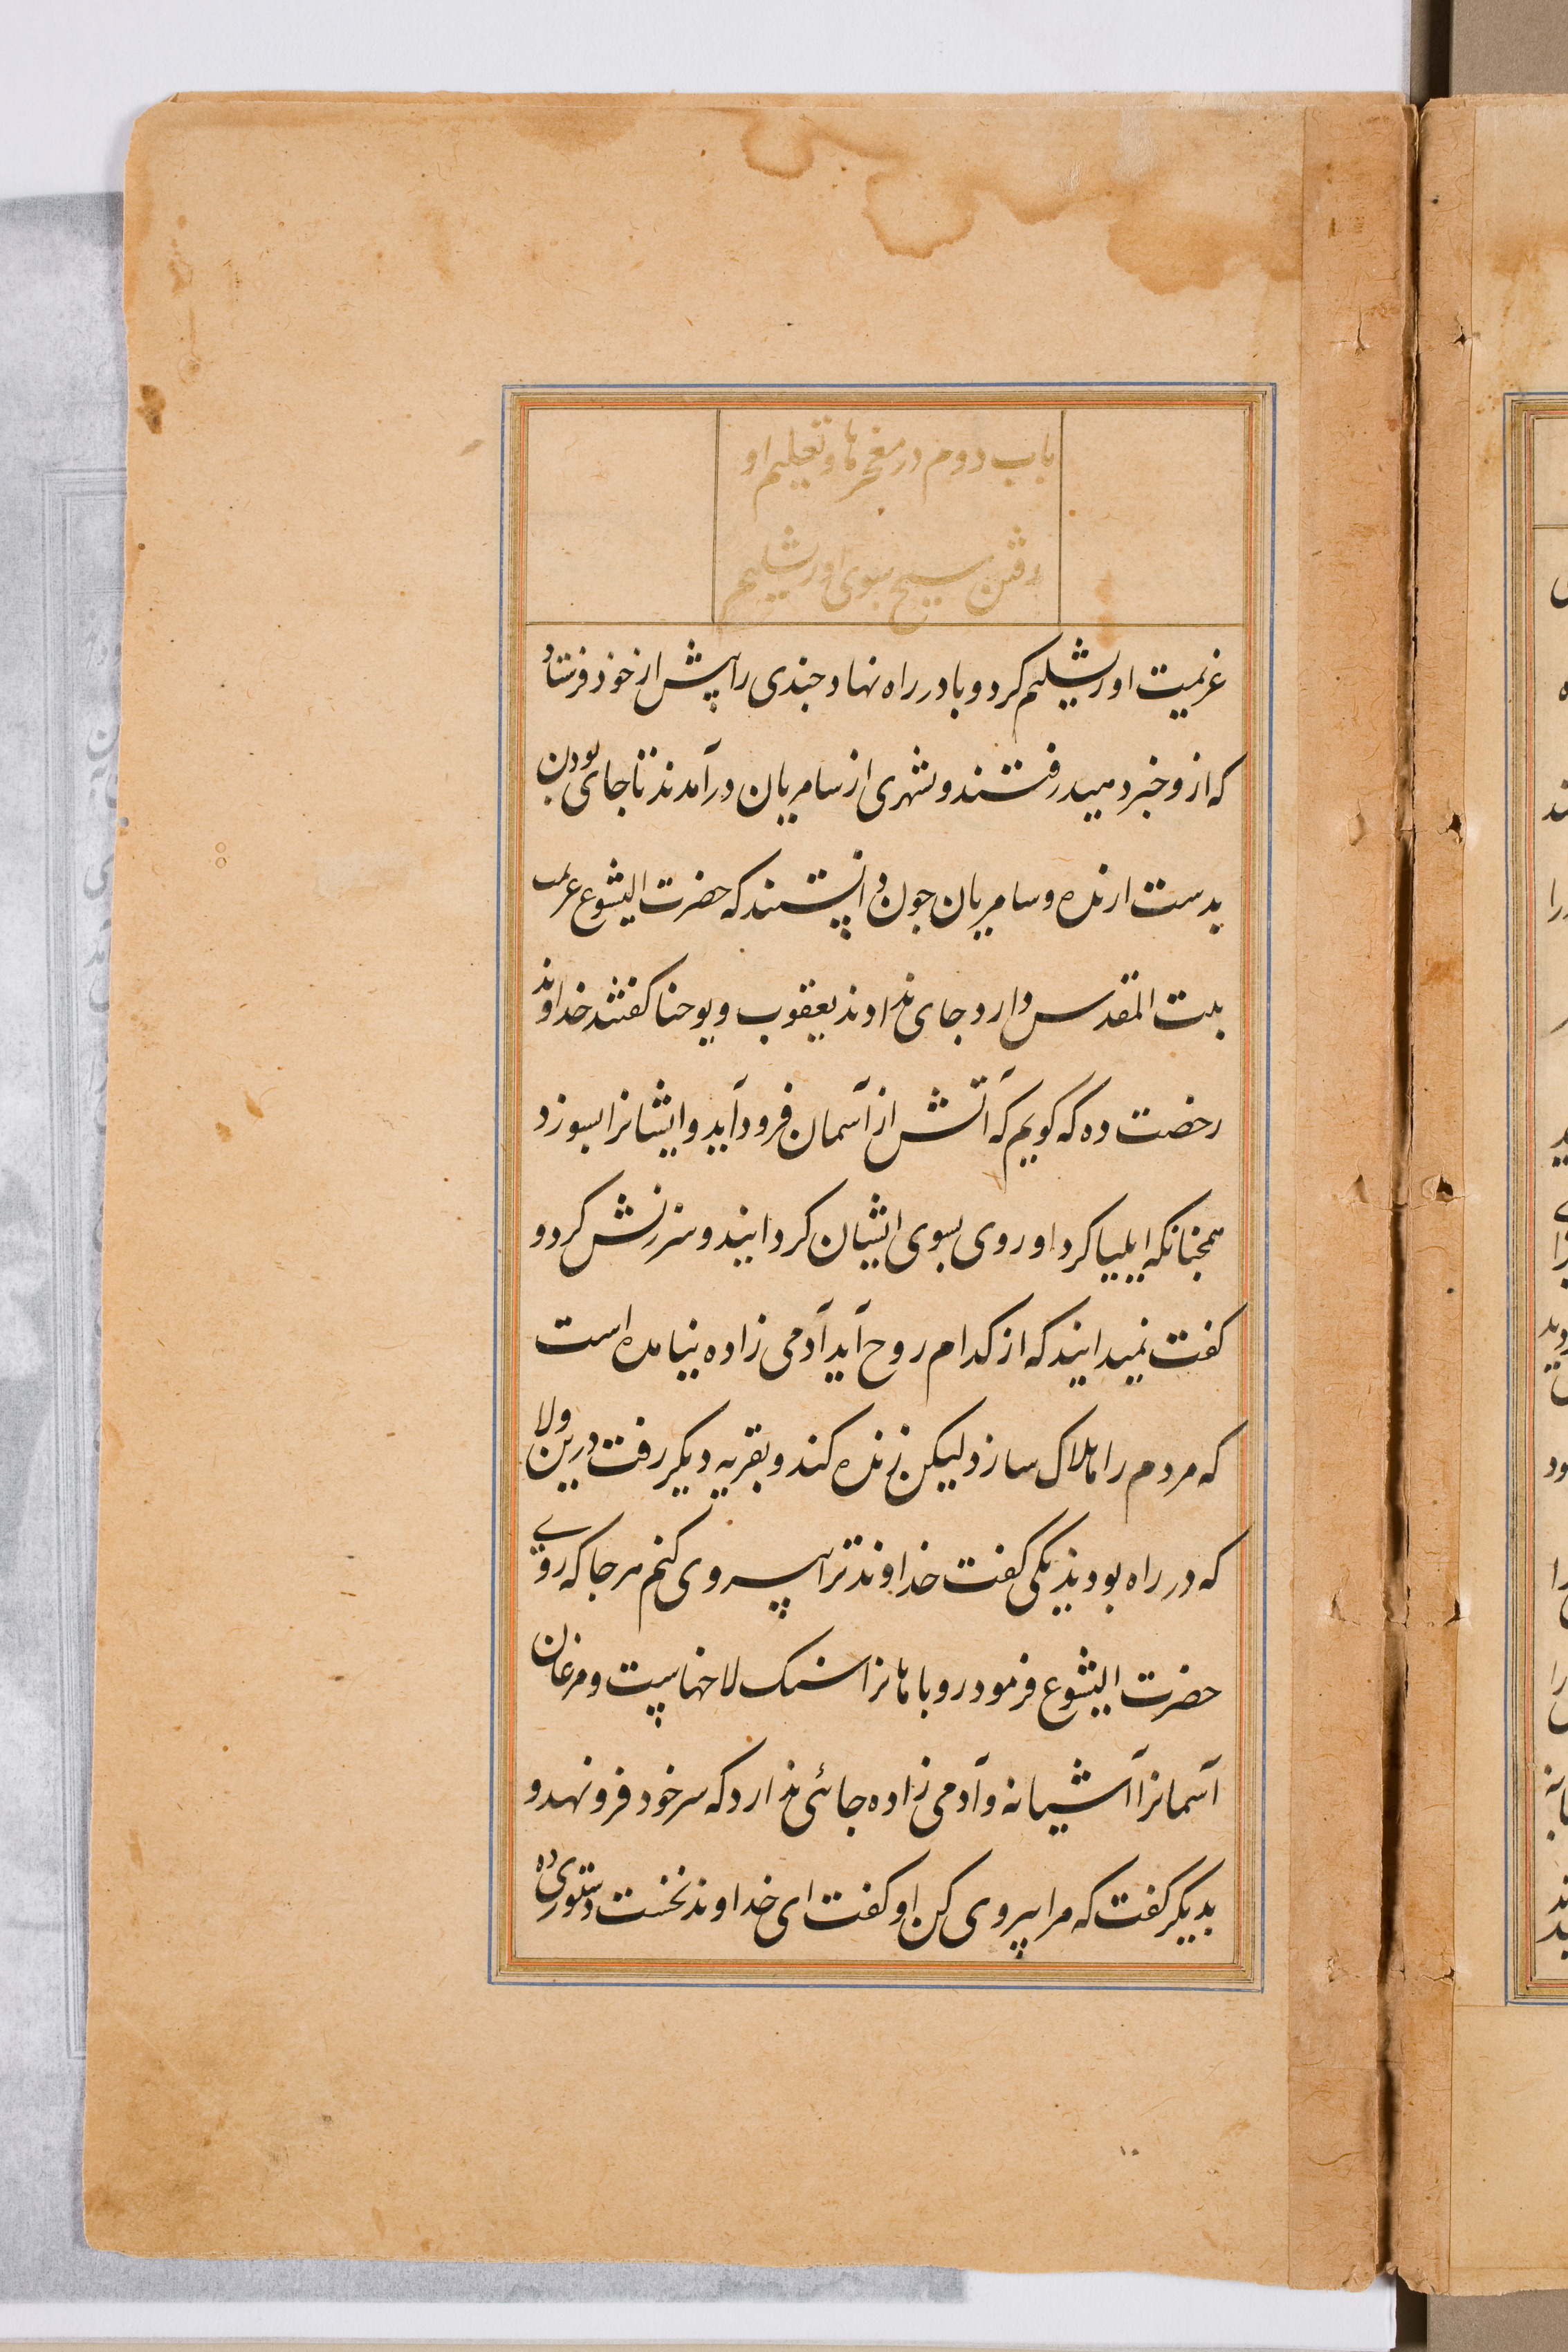 باب دوم در معجزها و تعلیم او
رفتن مسیح بسوی اورشلیم
عزیمت اورشلیم کرد و با در راه نهاد جندی را پیش از خود فرستاد
که ازو خبر دهید رفتند و شهری از سامریان در آمدند تا جای بودن
بدست ارنده و سامریان جون دانستند که حضرت ایشوع عزیمت
بیت المقدس دارد جای ندادند یعقوب و یوحنا کفتند خداوند
رخصت ده که کویم که آتش از آسمان فرود آید و ایشانرا بسوزد
همجنانکه ایلیا کرد او روی بسوی ایشان کردانید و سرزنش کرد و
کفت نمیدانید که از کدام روح آید آدمی زاده نیامده است
که مردم را هلاک سازد لیکن زنده کند و بقریه دیکر رفت درین ولا
که در راه بودند یکی کفت خداوند ترا پیروی کنم هر جا که روی
حضرت ایشوع فرمود روباهانرا سنک لاخهاست و مرغان
آسمانرا آشیانه و آدمی زاده جائی ندارد که سر خود فرو نهد و
بدیکر کفت که مرا پیروی کن او کفت ای خداوند نخست دستوری ده
۱۰